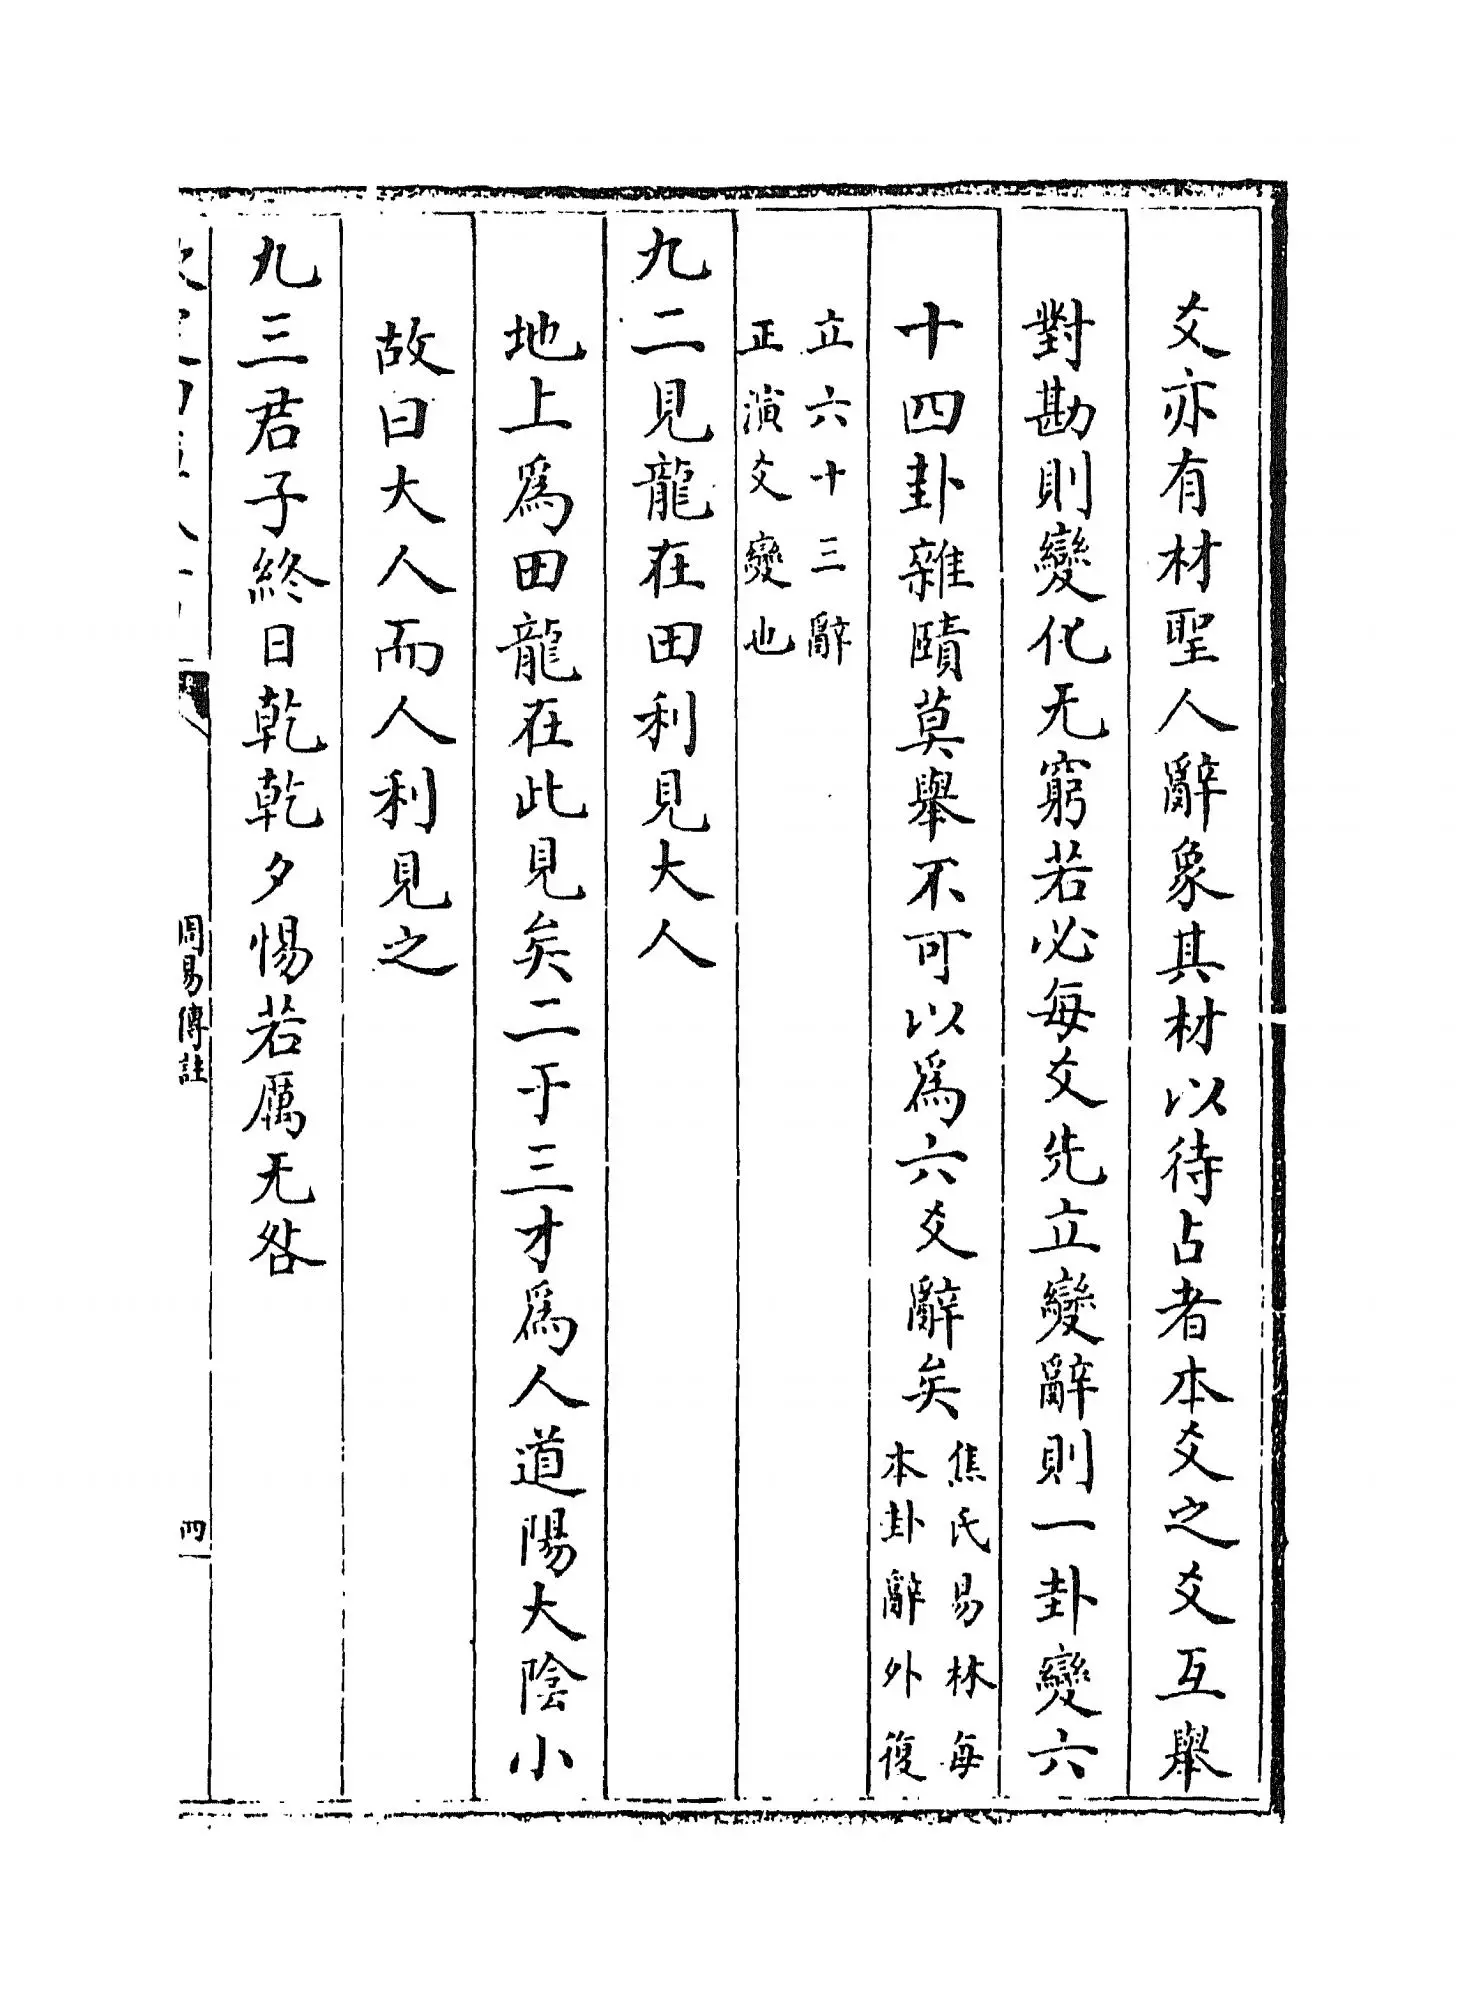 爻亦有材聖人辭象其材以待占者本爻之爻互舉
對勘則變化无窮若必每爻先立變辭則一卦變六
十四卦雜賾莫舉不可以為六爻辭矣焦氏易林每
本卦辭外復
立六十三辭
正演爻變也
九二見龍在田利見大人
地上為田龍在此見矣二于三才為人道陽大陰小
故曰大人而人利見之
九三君子終日乾乾夕惕若厲无咎
周易傳註
四